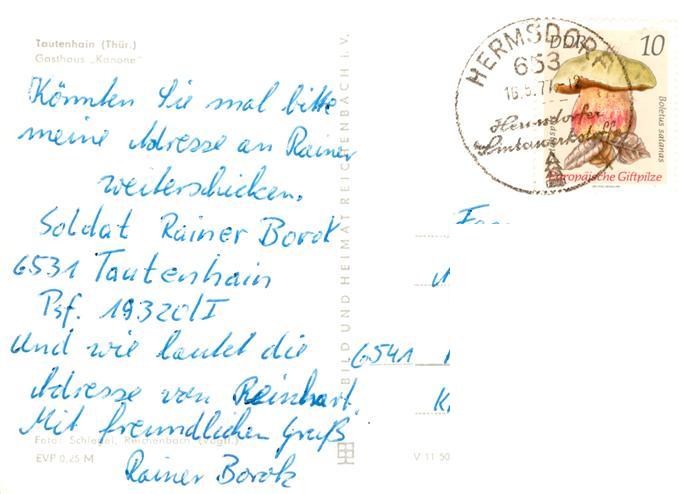 Tautenhain (Thür.)
Gasthaus „Kanone"
Könnten Sie mal bitte
meine Adresse an Rainer
weiterschicken.
Soldat Rainer Borok
6531 Tautenhain
Psf. 19320/I
Und wie lautet die
Adresse von Reinhart.
Mit freundlichen Gruß
Rainer Borok
Foto: Schlegel, Reichenbach (Vogtl.)
EVP 0,25 M
BILD UND HEIMAT REICHENBACH I.V.
V 11 50
HERMSDORF
653
16.5.77
Hermsdorfer
DDR
10
Boletus satanas
Europäische Giftpilze
6541